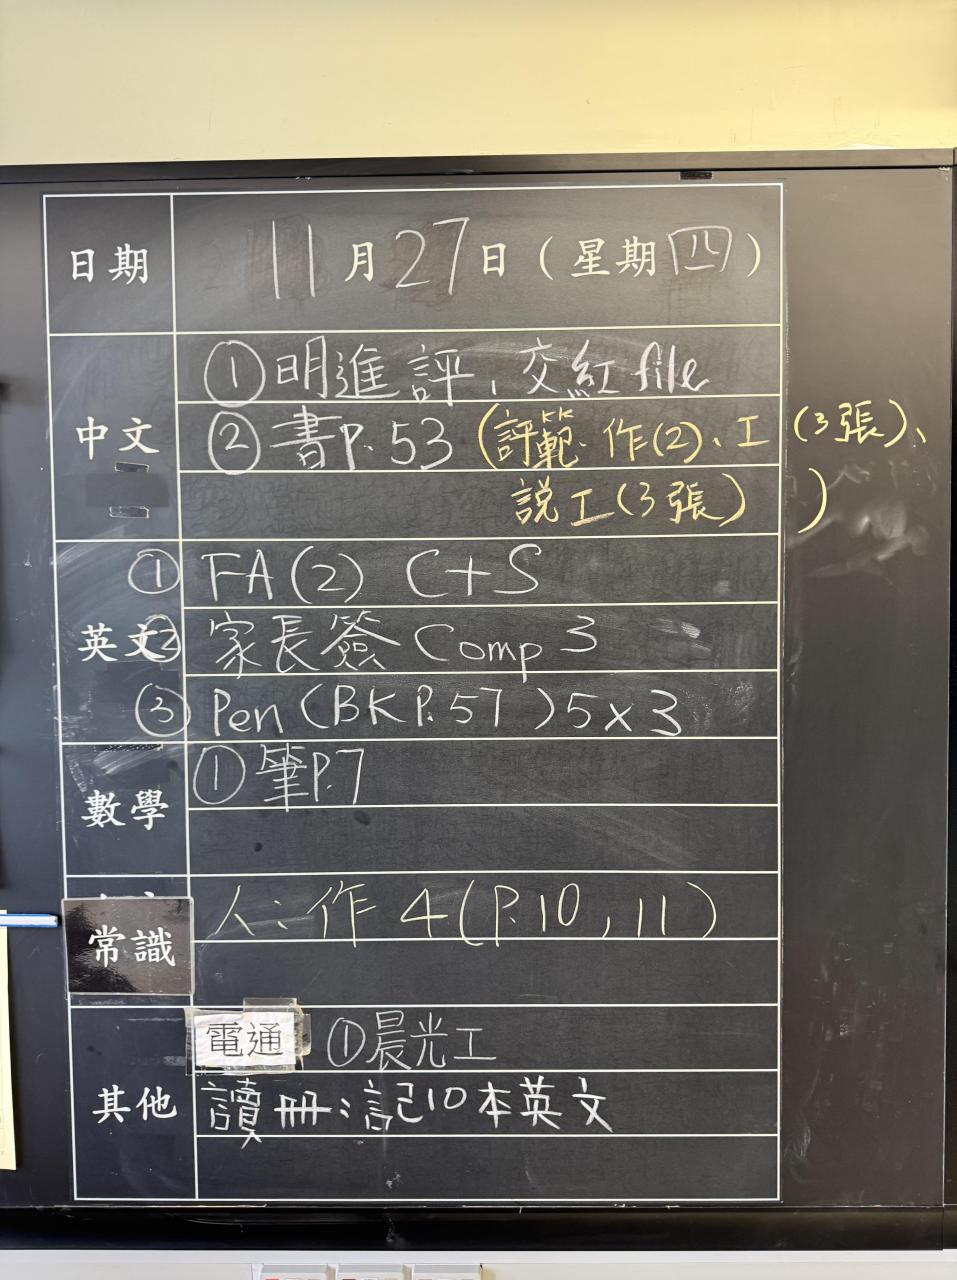 日期 11月27日(星期四)
中文 ①明進評、交紅file
②書P.53 (評範、作(2)、工(3張)、
説工(3張))
英文 ① FA(2) C+S
② 家長簽 Comp 3
③ Pen (BK P.57) 5x3
數學 ①筆P.7
常識 人:作4(P.10,11)
其他 電通 ①晨光工
讀冊:記10本英文